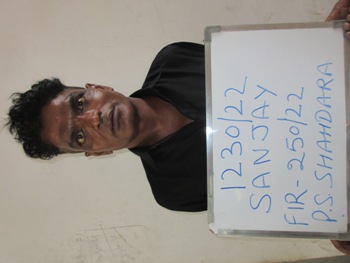 1230/22
SANJAY
FIR-250/22
P.S. SHAHDARA